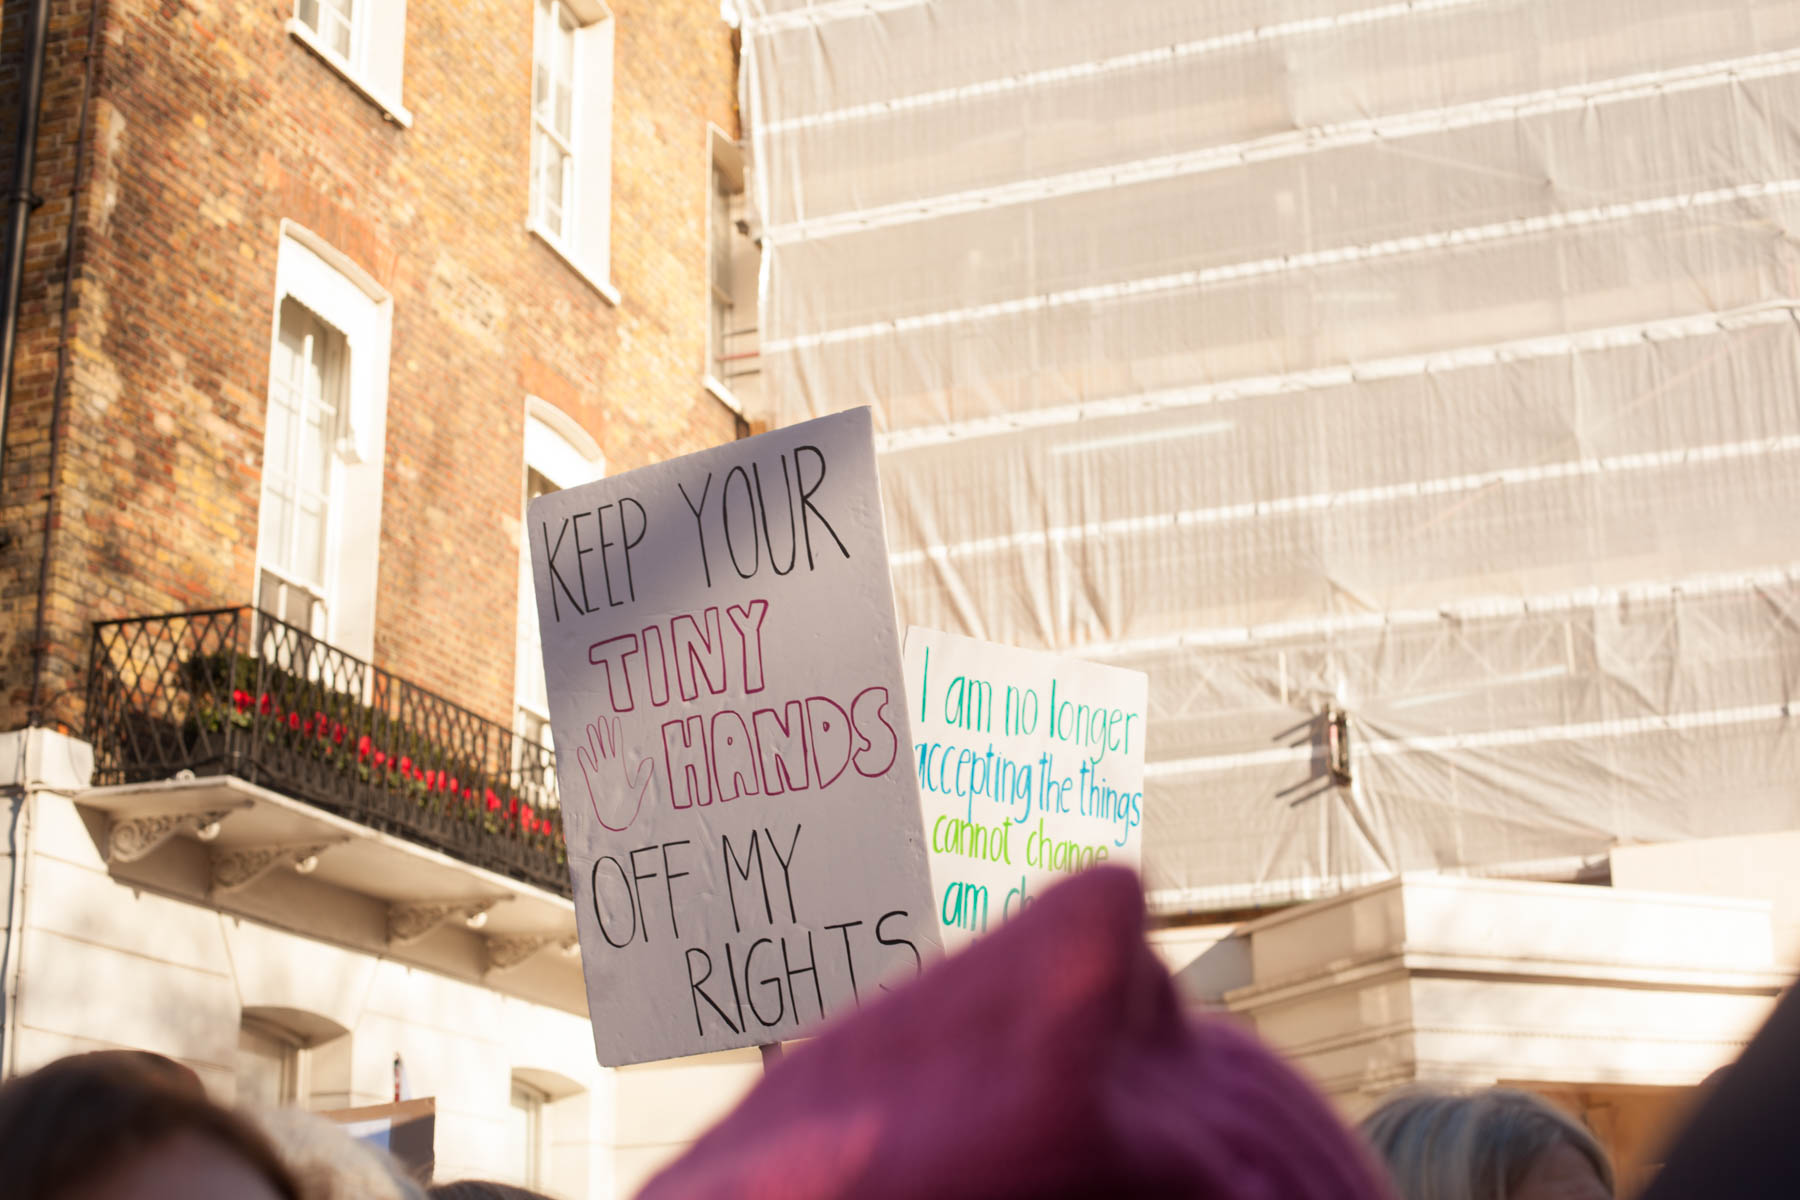 KEEP YOUR
TINY
HANDS
OFF MY
RIGHTS
I am no longer
accepting the things
cannot change
am